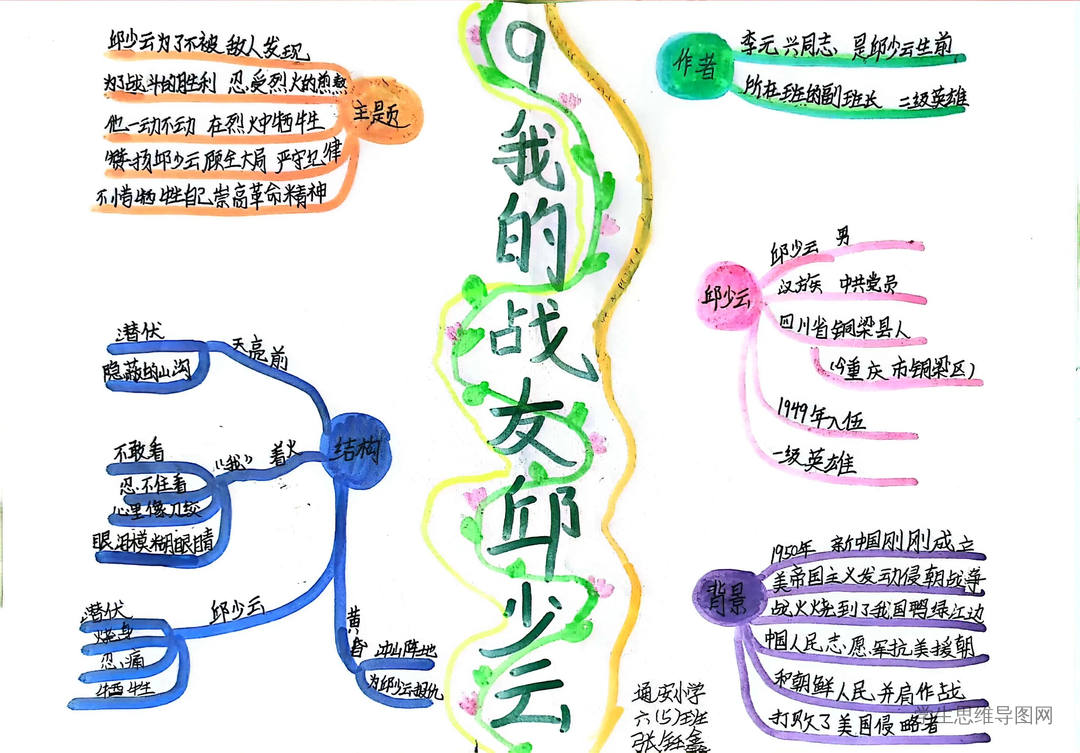 9
我的战友邱少云
主题
邱少云为了不被敌人发现
为了战斗的胜利 忍受烈火的煎熬
他一动不动 在烈火中牺牲
赞扬邱少云顾全大局 严守纪律
不惜牺牲自己崇高革命精神
作者
李元兴同志 是邱少云生前
所在班的副班长 二级英雄
邱少云
邱少云 男
汉族 中共党员
四川省铜梁县人
(今重庆市铜梁区)
1949年入伍
一级英雄
结构
天亮前
潜伏
隐蔽的山沟
着火
《我》
不敢看
忍不住看
心里像刀绞
眼泪模糊眼睛
邱少云
潜伏
烧身
忍痛
牺牲
黄昏
冲山阵地
为邱少云报仇
背景
1950年 新中国刚刚成立
美帝国主义发动侵朝战争
战火烧到了我国鸭绿江边
中国人民志愿军抗美援朝
和朝鲜人民并肩作战
打败了美国侵略者
通安小学
六(5)班
张钰鑫
学生思维导图网